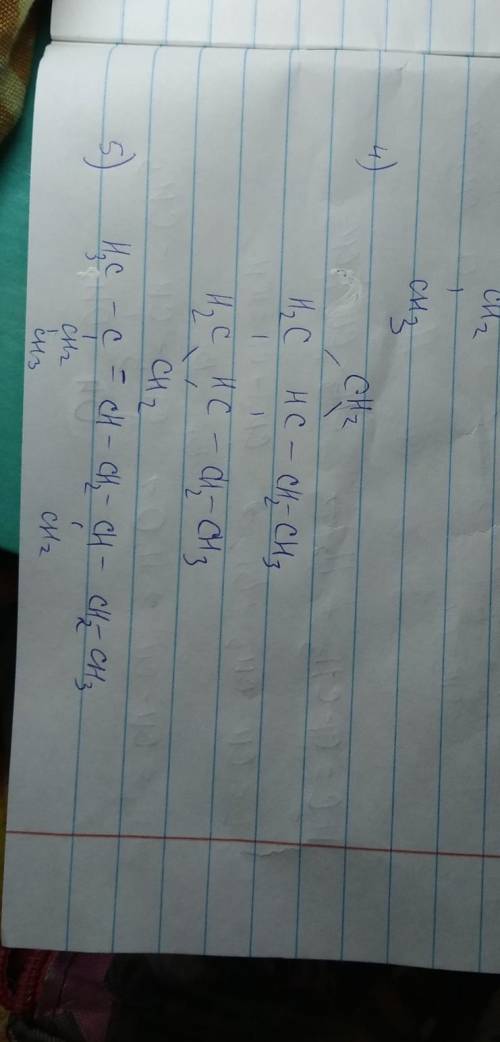 CH₂
CH₃
4)
CH₂
H₂C HC – CH₂ – CH₃
H₂C HC – CH₂ – CH₃
CH₂
5) H₃C – C = CH – CH₂ – CH – CH₂ – CH₃
CH₂ CH₂
CH₃